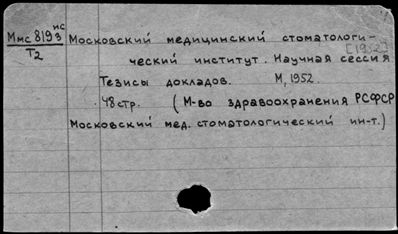 Ммс 819 ис/3 Московский медицинский стоматологи-
[1952]
Т2 ческий институт. Научная сессия
Тезисы докладов. М, 1952.
48 стр. (М-во здравоохранения РСФСР
Московский мед. стоматологический ин-т.)